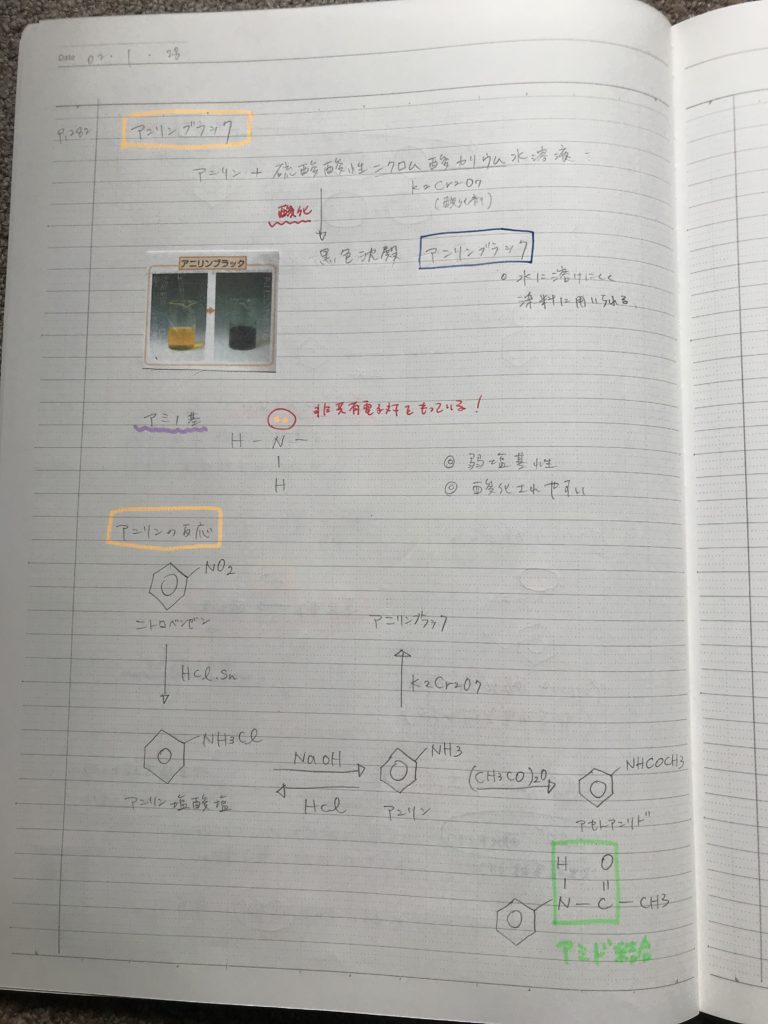 Date 02・1・28
P.282 アニリンブラック
アニリン + 硫酸酸性ニクロム酸カリウム水溶液
K2Cr2O7
(酸化剤)
酸化
黒色沈殿 アニリンブラック
水に溶けにくく
染料に用いられる。
アニリンブラック
アミノ基
非共有電子対をもっている!
H - N -
H
◎ 弱塩基性
◎ 酸化されやすい
アニリンの反応
NO2
ニトロベンゼン
アニリンブラック
HCl.Sn
K2Cr2O7
NH3Cl
NaOH
HCl
NH3
(CH3CO)2O
NHCOCH3
アニリン塩酸塩
アニリン
アセトアニリド
H O
N - C - CH3
アミド結合